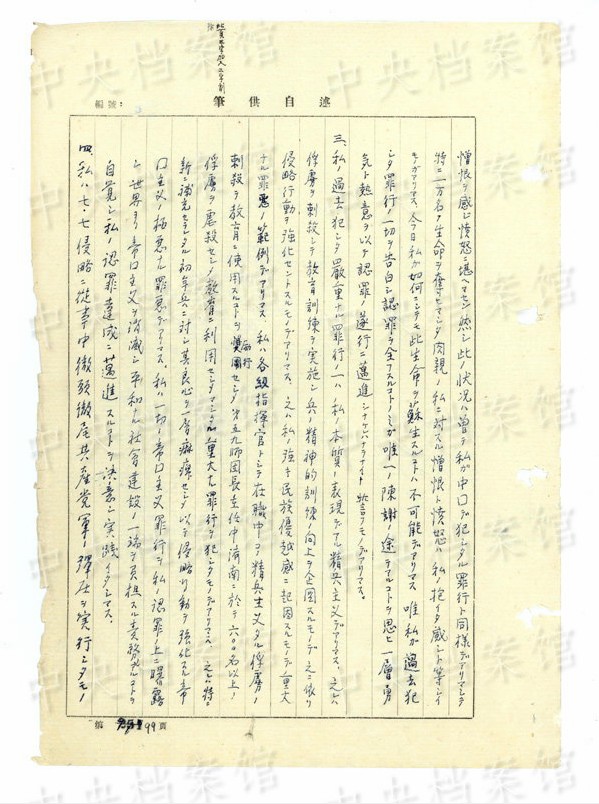 述自供筆
編號：
憎恨ヲ感ジ憤怒ニ堪ヘマセン 然シ此ノ状況ハ曽テ私ガ中囗デ犯シタル罪行ト同様デアリマシテ
特ニ一万名ノ生命ヲ奪ヒマシタ肉親ノ私ニ対スル憎恨ト憤怒ハ私ノ抱イタ感ジト等シイ
モノガアリマス、今日私ガ如何ニシテモ此生命ヲ蘇生スルコトハ不可能デアリマス 唯私ガ過去犯
シタ罪行ノ一切ヲ告白シ認罪ヲ全フスルコトノミガ唯一ノ陳謝ノ途デアルコトヲ思ヒ一層勇
気ト熱意ヲ以テ認罪ノ遂行ニ萬進シナケレバナラナイト誓フモノデアリマス。
三、私ノ過去犯シタ厳重ナル罪行ノ一ハ私ノ本質ノ表現デアル精兵主義デアリマス、之ハ
俘虜ヲ刺殺シテ教育訓練ヲ実施シ兵ノ精神的訓練ノ向上ヲ企図スルモノデ之ニ依リ
侵略行動ヲ強化セントスルモノデアリマス、之ハ私ノ強キ民族優越感ニ起因スルモノデ重大
ナル罪悪ノ範例デアリマス 私ハ各級指揮官トシテ在職中ヨリ精兵主義タル俘虜ノ
刺殺ヲ教育ニ使用スルコトヲ セシタ 第五九師団長在任中済南ニ於テ六〇〇名以上ノ
俘虜ヲ虐殺セシメ教育ニ利用セシメマシタル重大ナ罪行ヲ犯シタモノデアリマス、之ハ特ニ
新ニ補充セラレタル初年兵ニ対シ其良心ヲ一層麻痺セシメ以テ侵略行動ヲ強化スル帝
囗主义ノ極悪ナル罪悪デアリマス。私ハ一切ノ帝囗主义罪行ヲ私ノ認罪ノ上ニ曝露
シ世界ヨリ帝囗主义ヲ消滅シ平和ナル社会建設ノ一端ヲ負担スル責務アルコトヲ
自覚シ私ノ認罪達成ニ萬進スルコトヲ決意シ実践イタシマス。
四、私ハ七・七侵略ニ従事中徹頭徹尾共産党軍ノ弾圧ヲ実行シタモノ
第 99頁
中央档案馆